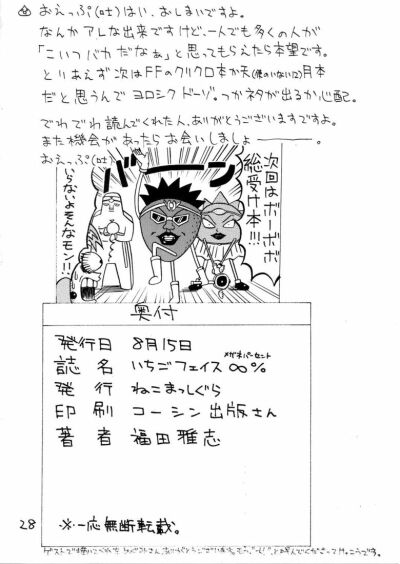 おえっぷ(吐)はい、おしまいですよ。
なんかアレな出来ですけど、一人でも多くの人が
「こいつバカだなぁ」と思ってもらえたら本望です。
とりあえず次はFFのクリクロ本か天(僕のいない12)月本
だと思うんでヨロシクドーゾ。つかネタが出るか心配。
でわでわ読んでくれた人、ありがとうございますですよ。
また機会があったらお会いしましょ―――。
おえっぷ(吐)
バーン
次回はボーボボ
総受け本!!!
いらないよそんなモン!!
奥付
発行日 8月15日
メガネパーセント
誌名 いちごフェイス∞%
発行 ねこまっしぐら
印刷 コーシン出版さん
著者 福田雅志
28
※一応無断転載。
ゲストで描いてくれた